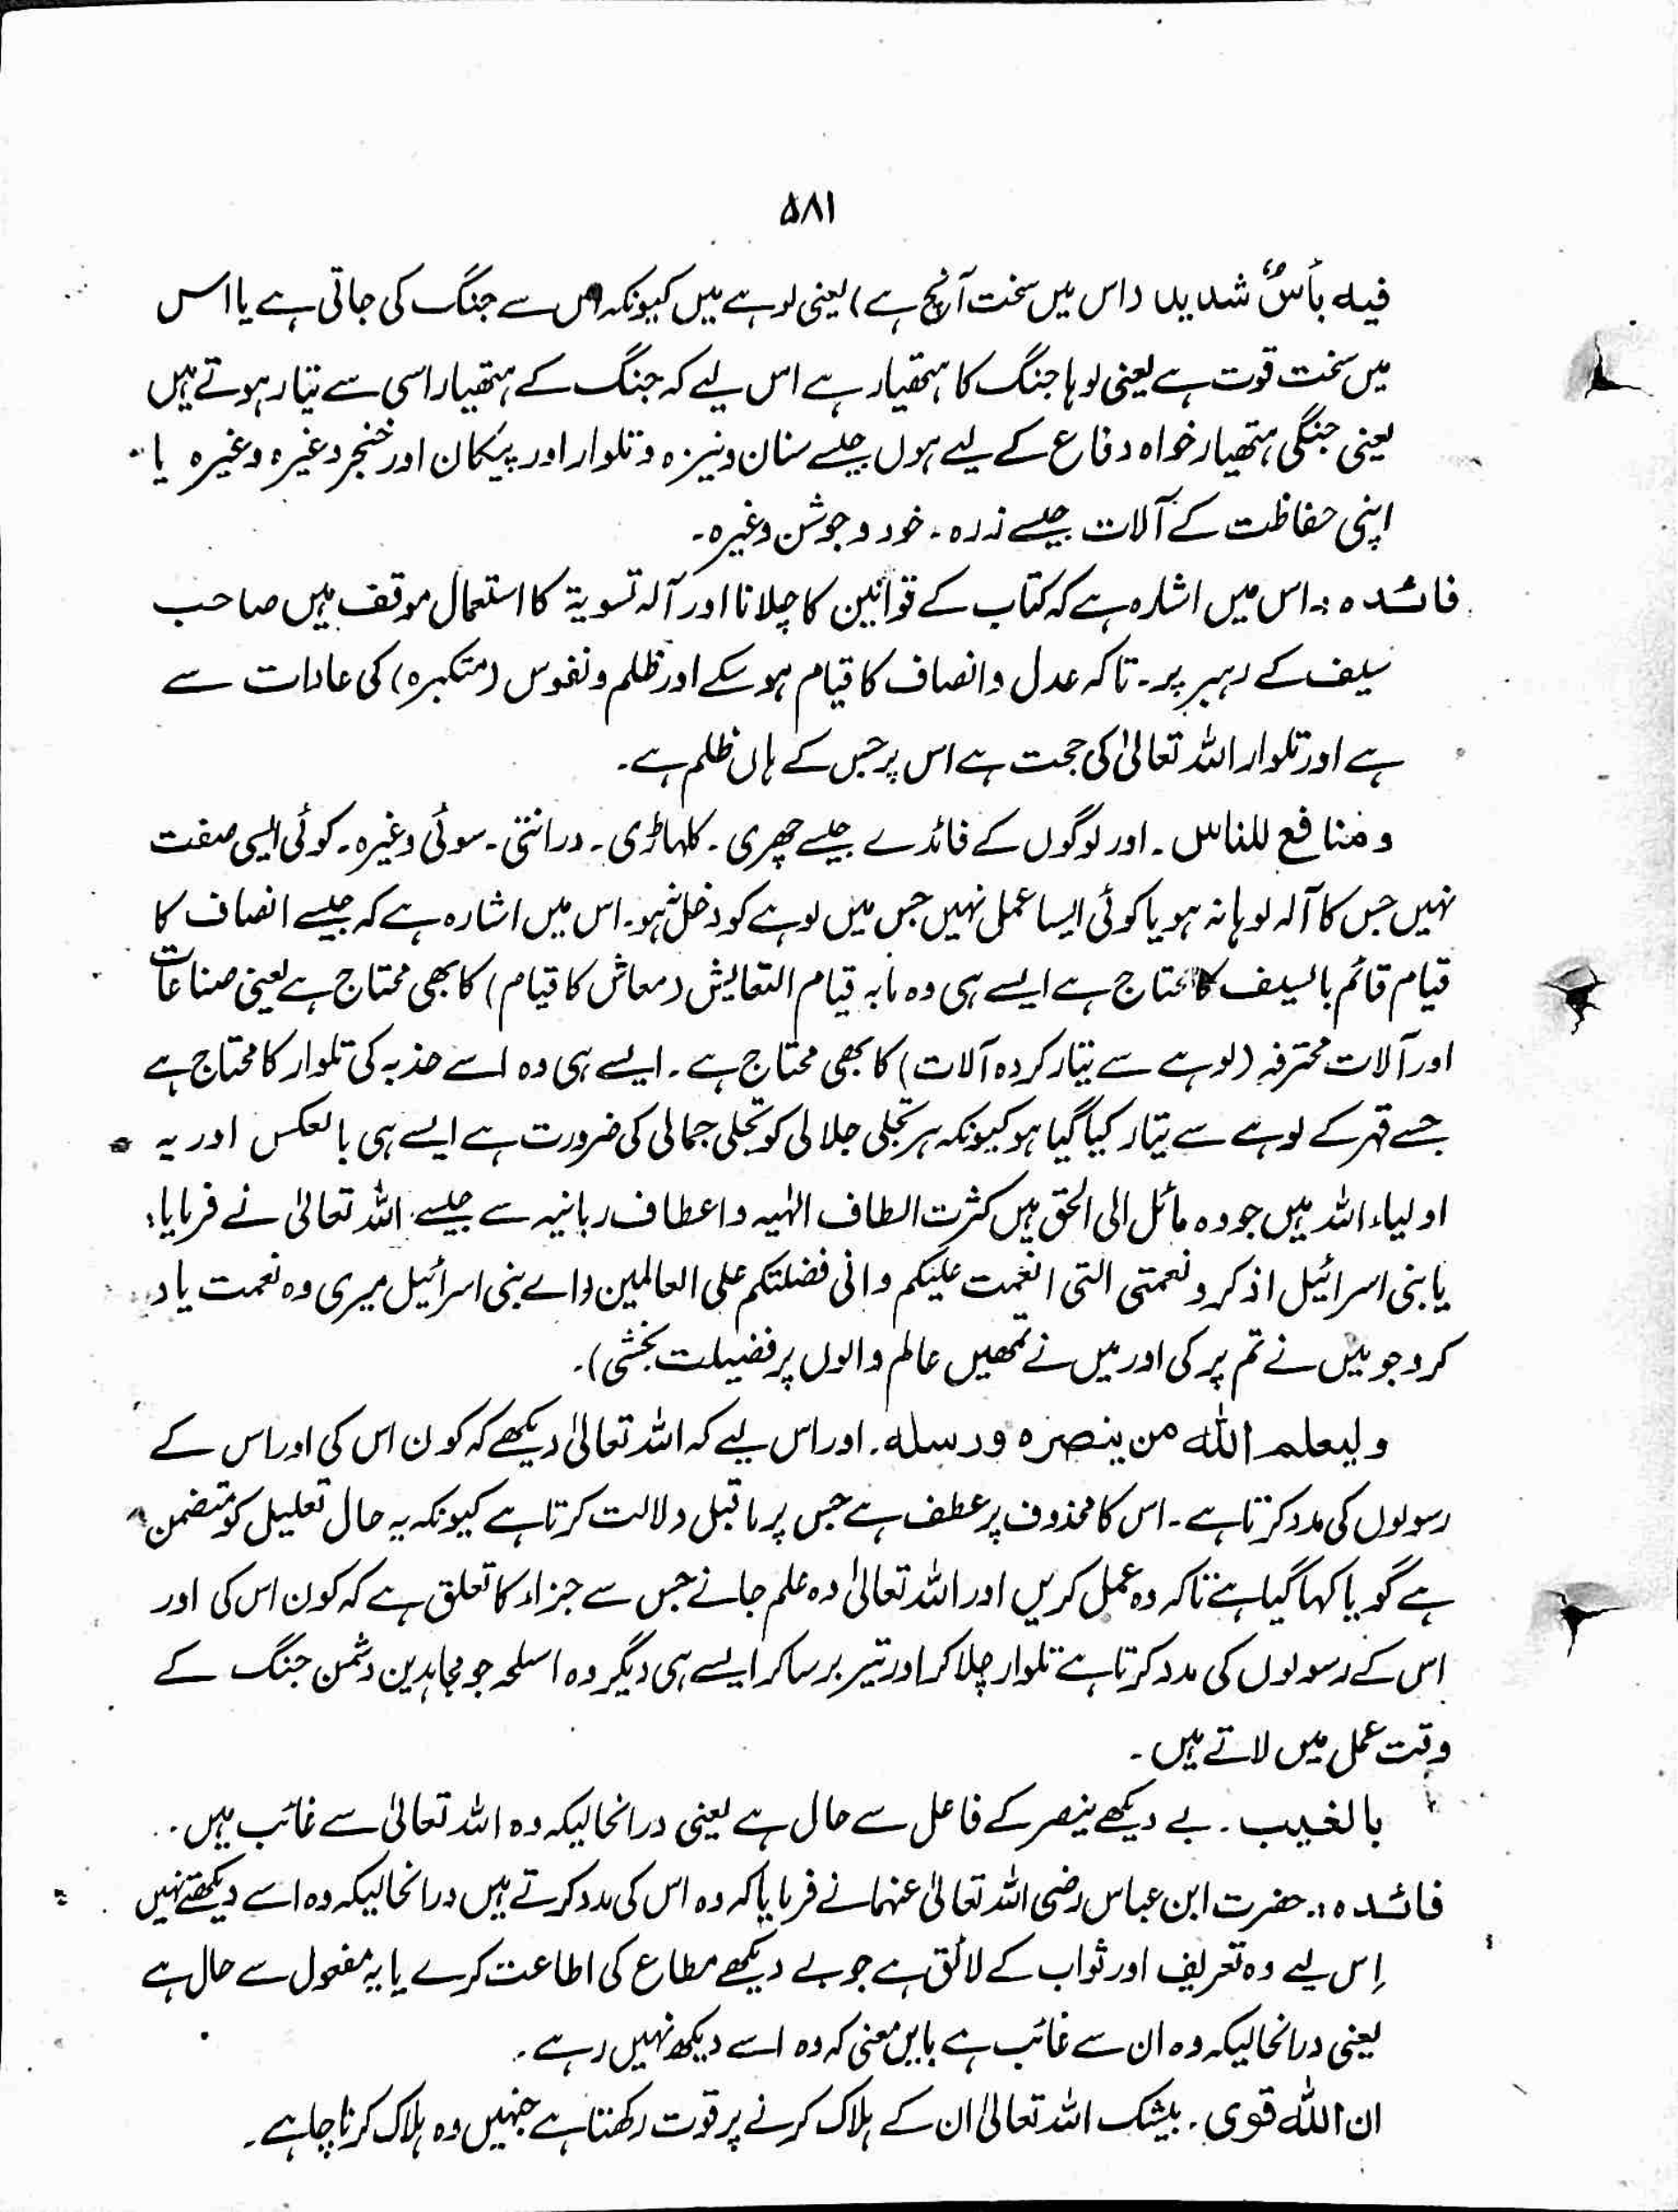 ۵۸۱
فیه بأسٌ شدید (اس میں سخت آنچ ہے) یعنی لوہے میں کیونکہ اس سے جنگ کی جاتی ہے یا اس
میں سخت قوت ہے یعنی لوہا جنگ کا ہتھیار ہے اس لیے کہ جنگ کے ہتھیار اسی سے تیار ہوتے ہیں
یعنی جنگی ہتھیار خواہ دفاع کے لیے ہوں جیسے سنان و نیزہ و تلوار اور پیکان اور خنجر وغیرہ وغیرہ یا
اپنی حفاظت کے آلات جیسے زرہ ۔ خود و جوشن وغیرہ۔
فائدہ :۔ اس میں اشارہ ہے کہ کتاب کے قوانین کا چلانا اور آلہ تسویۃ کا استعمال موقف ہیں صاحب
سیف کے رہبر پر۔ تاکہ عدل و انصاف کا قیام ہو سکے اور ظلم و نفوس (متکبرہ) کی عادات سے
ہے اور تلوار اللہ تعالیٰ کی حجت ہے اس پر جس کے ہاں ظلم ہے۔
و منافع للناس ۔ اور لوگوں کے فائدے جیسے چھری ۔ کلہاڑی ۔ درانتی ۔ سوئی وغیرہ۔ کوئی ایسی صفت
نہیں جس کا آلہ لوہا نہ ہو یا کوئی ایسا عمل نہیں جس میں لوہے کو دخل نہ ہو۔ اس میں اشارہ ہے کہ جیسے انصاف کا
قیام قائم بالسیف کا محتاج ہے ایسے ہی وہ مابہ قیام التعایش (معاش کا قیام) کا بھی محتاج ہے یعنی صناعات
اور آلات محترفہ (لوہے سے تیار کردہ آلات) کا بھی محتاج ہے ۔ ایسے ہی وہ اسے جذبہ کی تلوار کا محتاج ہے
جسے قہر کے لوہے سے تیار کیا گیا ہو کیونکہ ہر تجلی جلالی کو تجلی جمالی کی ضرورت ہے ایسے ہی بالعکس اور یہ
اولیاء اللہ ہیں جو وہ مائل الی الحق ہیں کثرت الطاف الٰہیہ و اعطاف ربانیہ سے جیسے اللہ تعالیٰ نے فرمایا:
یا بنی اسرائیل اذکرو نعمتی التی انعمت علیکم و انی فضلتکم علی العالمین (اے بنی اسرائیل میری وہ نعمت یاد
کرو جو میں نے تم پر کی اور میں نے تمھیں عالم والوں پر فضیلت بخشی)۔
ولیعلم اللہ من ینصرہ ورسلہ۔ اور اس لیے کہ اللہ تعالیٰ دیکھے کہ کون اس کی اور اس کے
رسولوں کی مدد کرتا ہے۔ اس کا محذوف پر عطف ہے جس پر ماقبل دلالت کرتا ہے کیونکہ یہ حال تعلیل کو متضمن
ہے گویا کہا گیا ہے تاکہ وہ عمل کریں اور اللہ تعالیٰ وہ علم جانے جس سے جزاء کا تعلق ہے کہ کون اس کی اور
اس کے رسولوں کی مدد کرتا ہے تلوار چلا کر اور تیر برسا کر ایسے ہی دیگر وہ اسلحہ جو مجاہدین دشمن جنگ کے
وقت عمل میں لاتے ہیں ۔
بالغیب ۔ بے دیکھے ینصر کے فاعل سے حال ہے یعنی درانحالیکہ وہ اللہ تعالیٰ سے غائب ہیں ۔
فائدہ :۔ حضرت ابن عباس رضی اللہ تعالیٰ عنہما نے فرمایا کہ وہ اس کی مدد کرتے ہیں درانحالیکہ وہ اسے دیکھتے نہیں
اِس لیے وہ تعریف اور ثواب کے لائق ہے جو بے دیکھے مطاع کی اطاعت کرے یا یہ مفعول سے حال ہے
یعنی درانحالیکہ وہ ان سے غائب ہے بایں معنی کہ وہ اسے دیکھ نہیں رہے ۔
ان اللہ قوی ۔ بیشک اللہ تعالیٰ ان کے ہلاک کرنے پر قوت رکھتا ہے جنہیں وہ ہلاک کرنا چاہے ۔